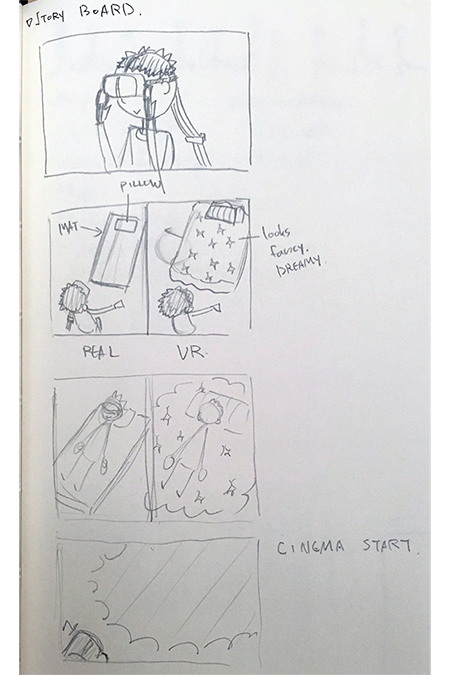 STORY BOARD.
PILLOW
MAT
looks
fancy.
DREAMY.
REAL
VR.
CINEMA START.